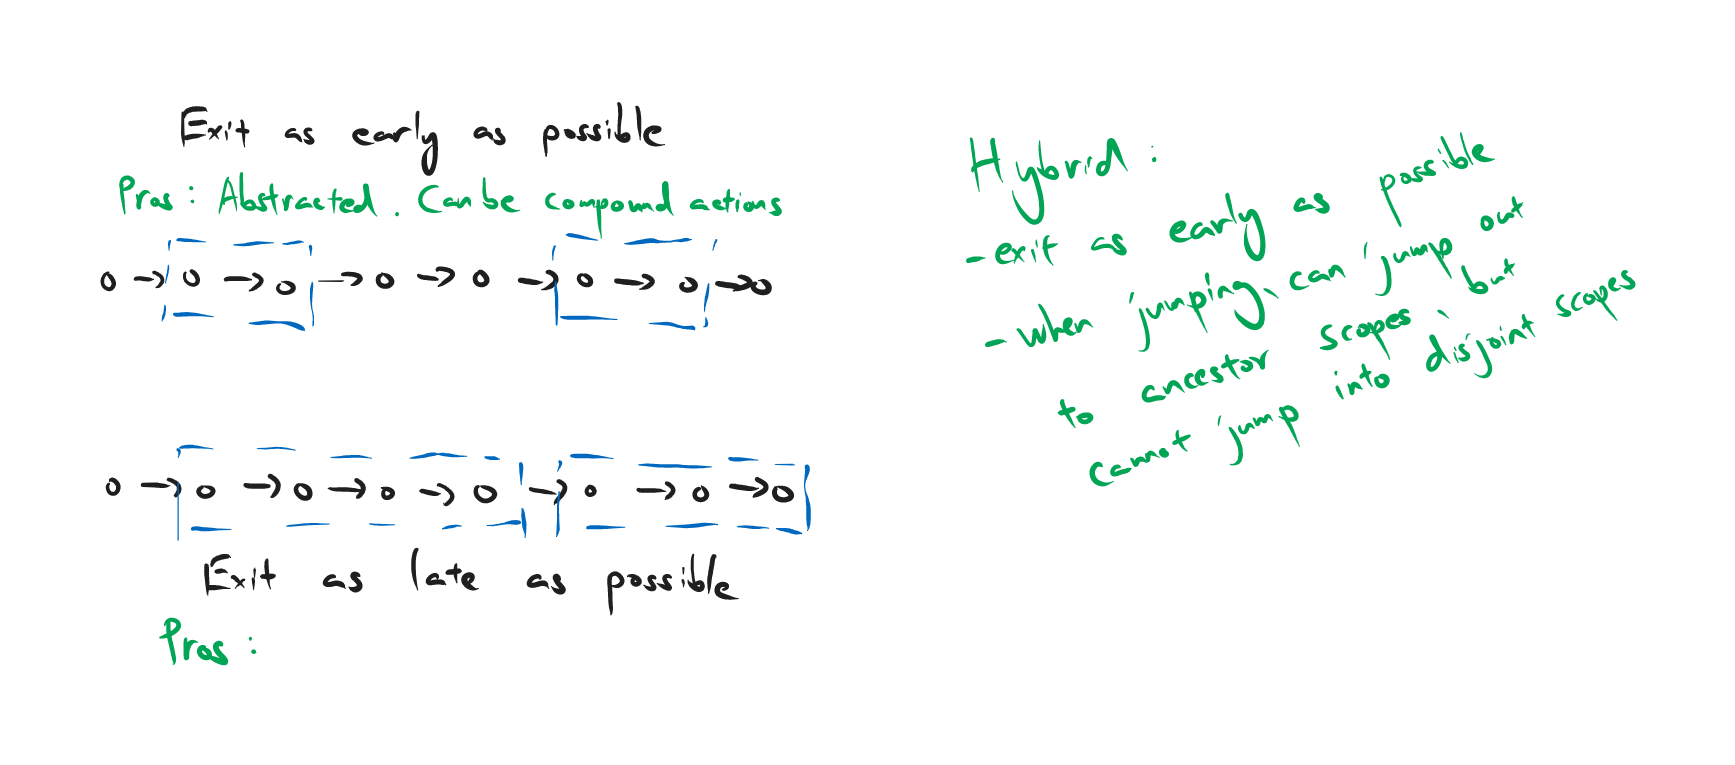 Exit as early as possible
Pros : Abstracted. Can be compound actions
Exit as late as possible
Pros :
Hybrid :
- exit as early as possible
- when jumping, can jump out
to ancestor scopes, but
cannot jump into disjoint scopes